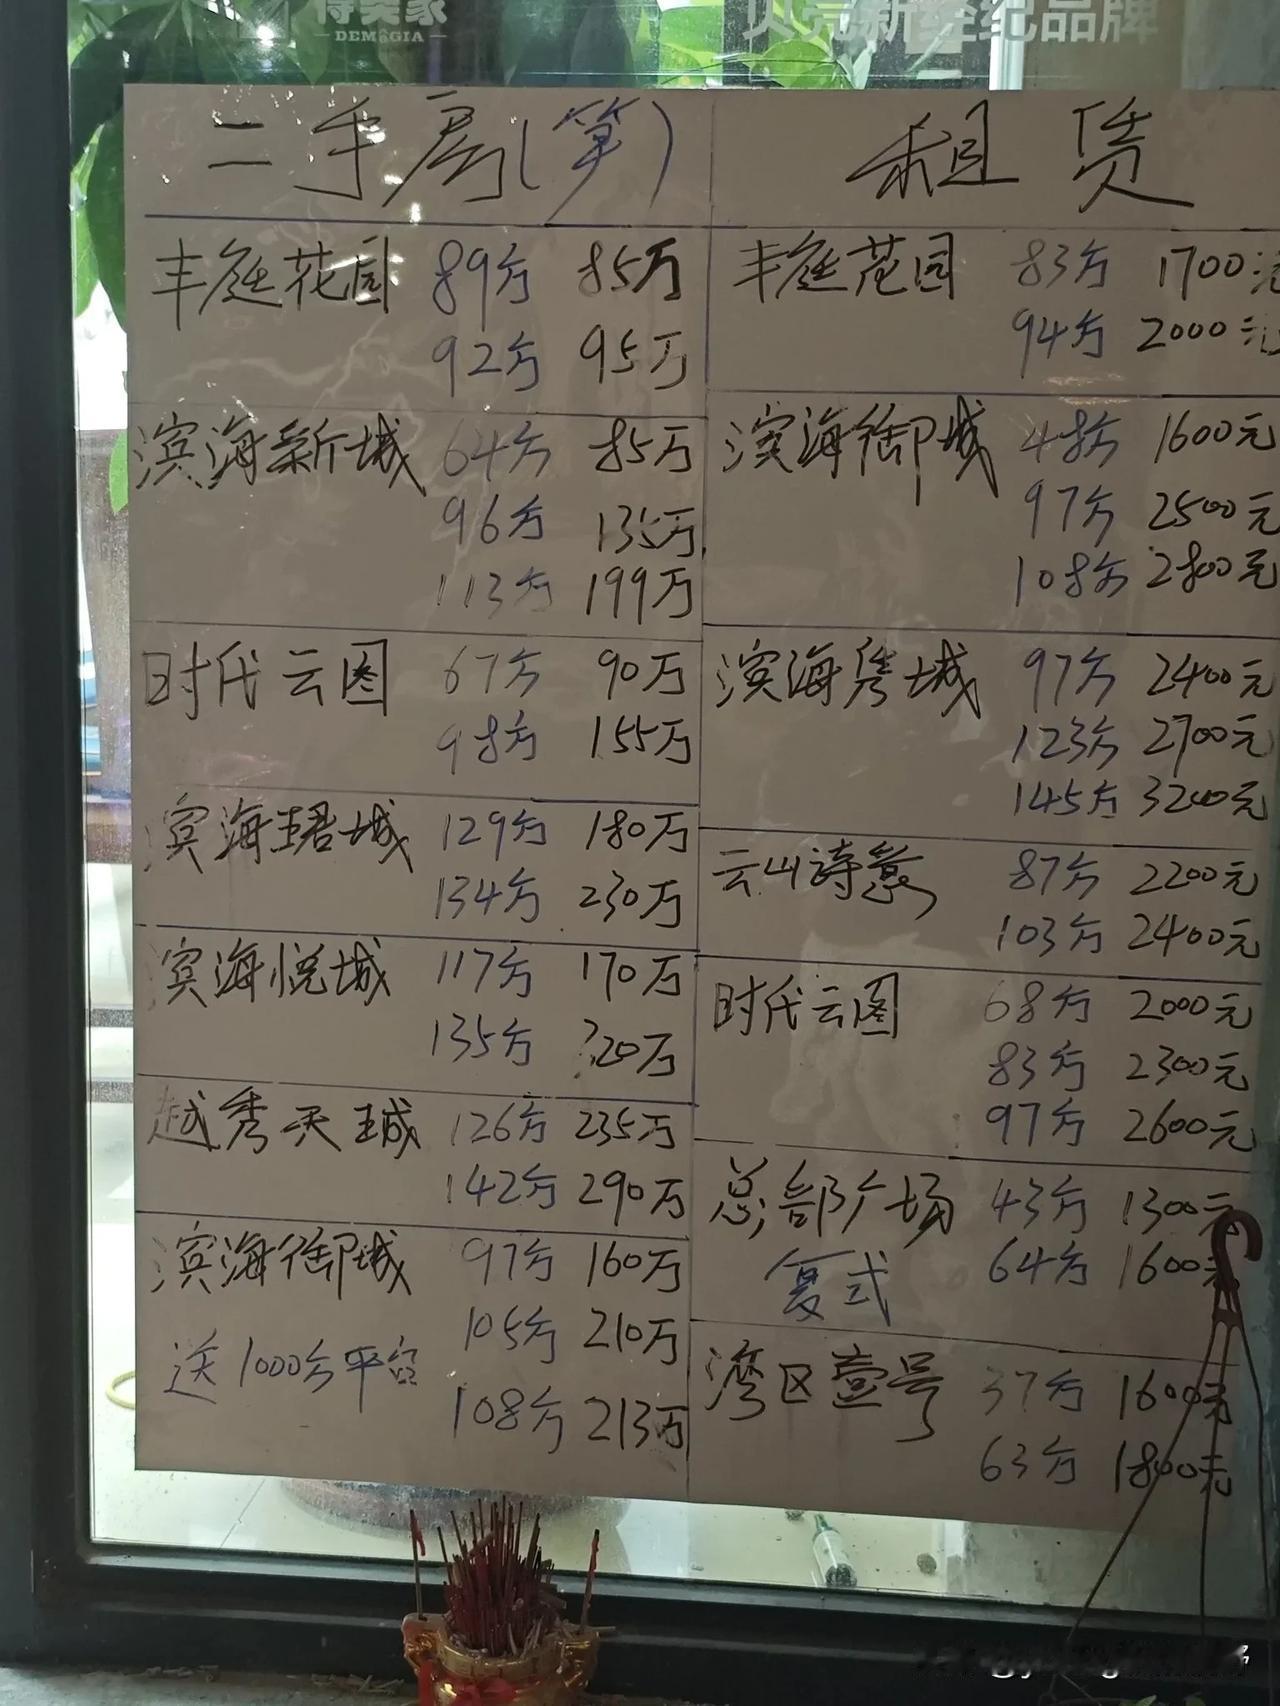 德奕家
DEMEGIA
贝壳新经纪品牌
二手房(笋)
丰庭花园 89方 85万
92方 95万
滨海新城 64方 85万
96方 135万
113方 199万
时代云图 67方 90万
98方 155万
滨海珺城 129方 180万
134方 230万
滨海悦城 117方 170万
135方 220万
越秀天珹 126方 235万
142方 290万
滨海御城 97方 160万
105方 210万
送1000方平台
108方 213万
租赁
丰庭花园 83方 1700元
94方 2000元
滨海御城 48方 1600元
97方 2500元
108方 2800元
滨海隽城 97方 2400元
123方 2700元
145方 3200元
云山诗意 87方 2200元
103方 2400元
时代云图 68方 2000元
83方 2300元
97方 2600元
总部广场 43方 1300元
复式 64方 1600元
湾区壹号 37方 1600元
63方 1800元